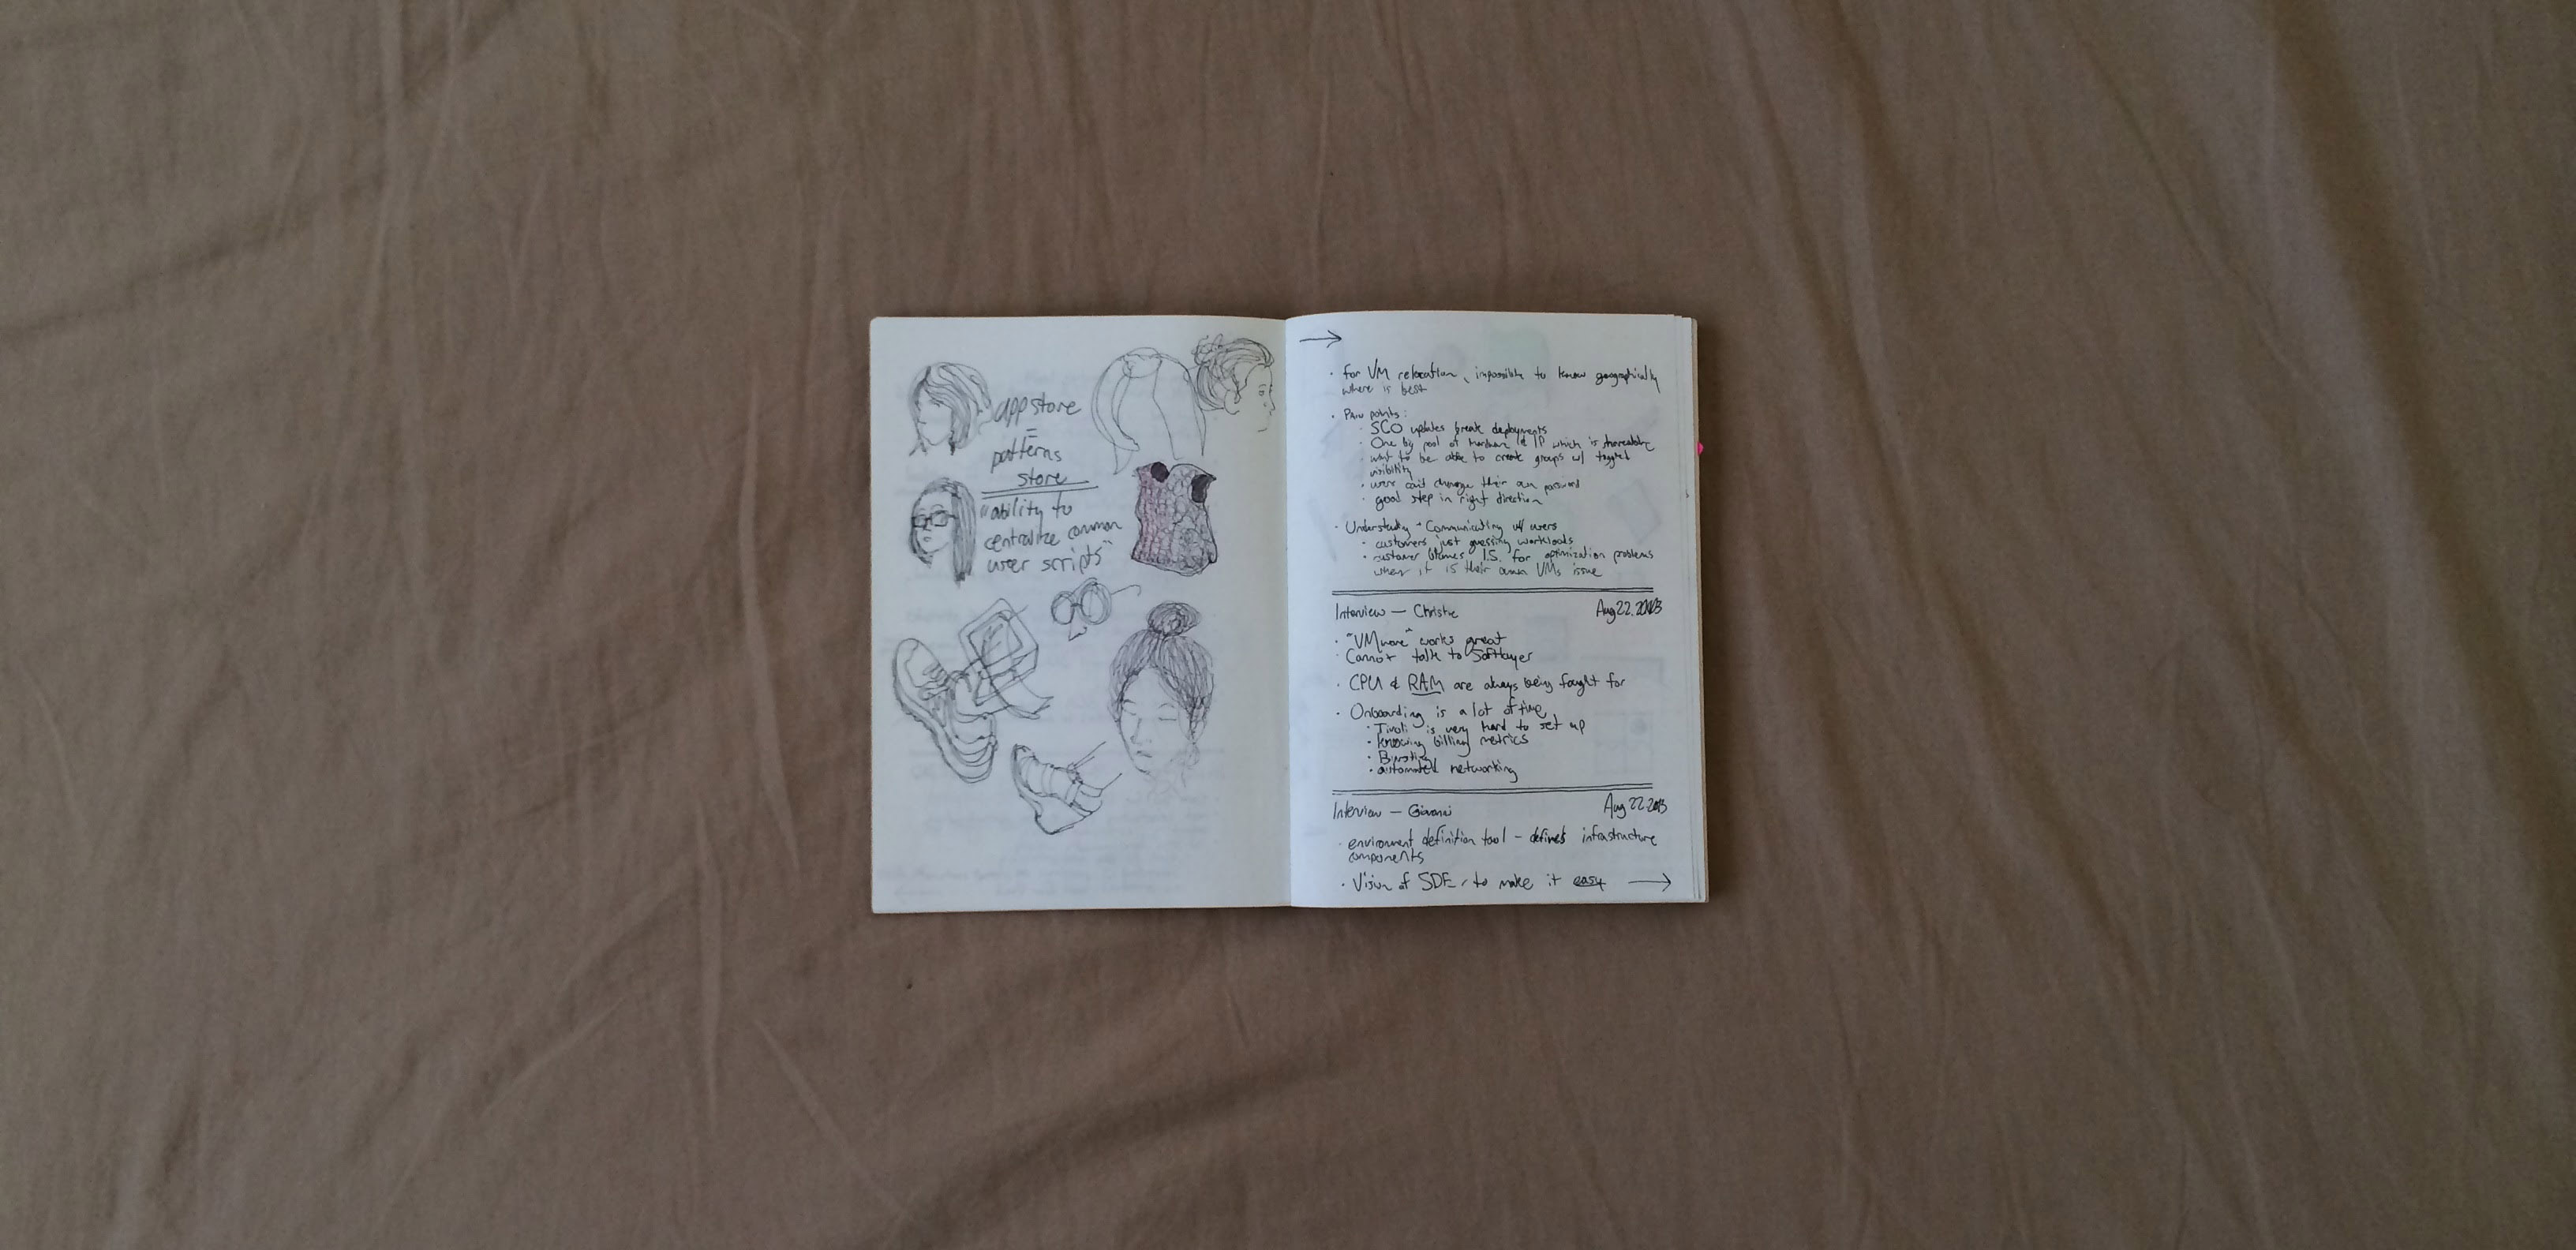 app store
=
patterns
store
"ability to
centralize common
user scripts"
→
· for VM relocation, impossible to know geographically
where is best
· Pain points:
· SCO updates break deployments
· One big pool of hardware & IP which is
· want to be able to create groups w/ tagged
visibility
· user can't change their own password
· good step in right direction
· Understanding + Communicating w/ users
· customers just guessing workloads
· customer blames I.S. for optimization problems
when it is their own VMs issue
Interview — Christie Aug 22. 2013
· "VMware" works great
· Cannot talk to Softlayer
· CPU & RAM are always being fought for
· Onboarding is a lot of time
· Tivoli is very hard to set up
· knowing billing metrics
· automated networking
Interview — Giovanni Aug 22 2013
· environment definition tool – defines infrastructure
components
· Vision of SDE, to make it easy →